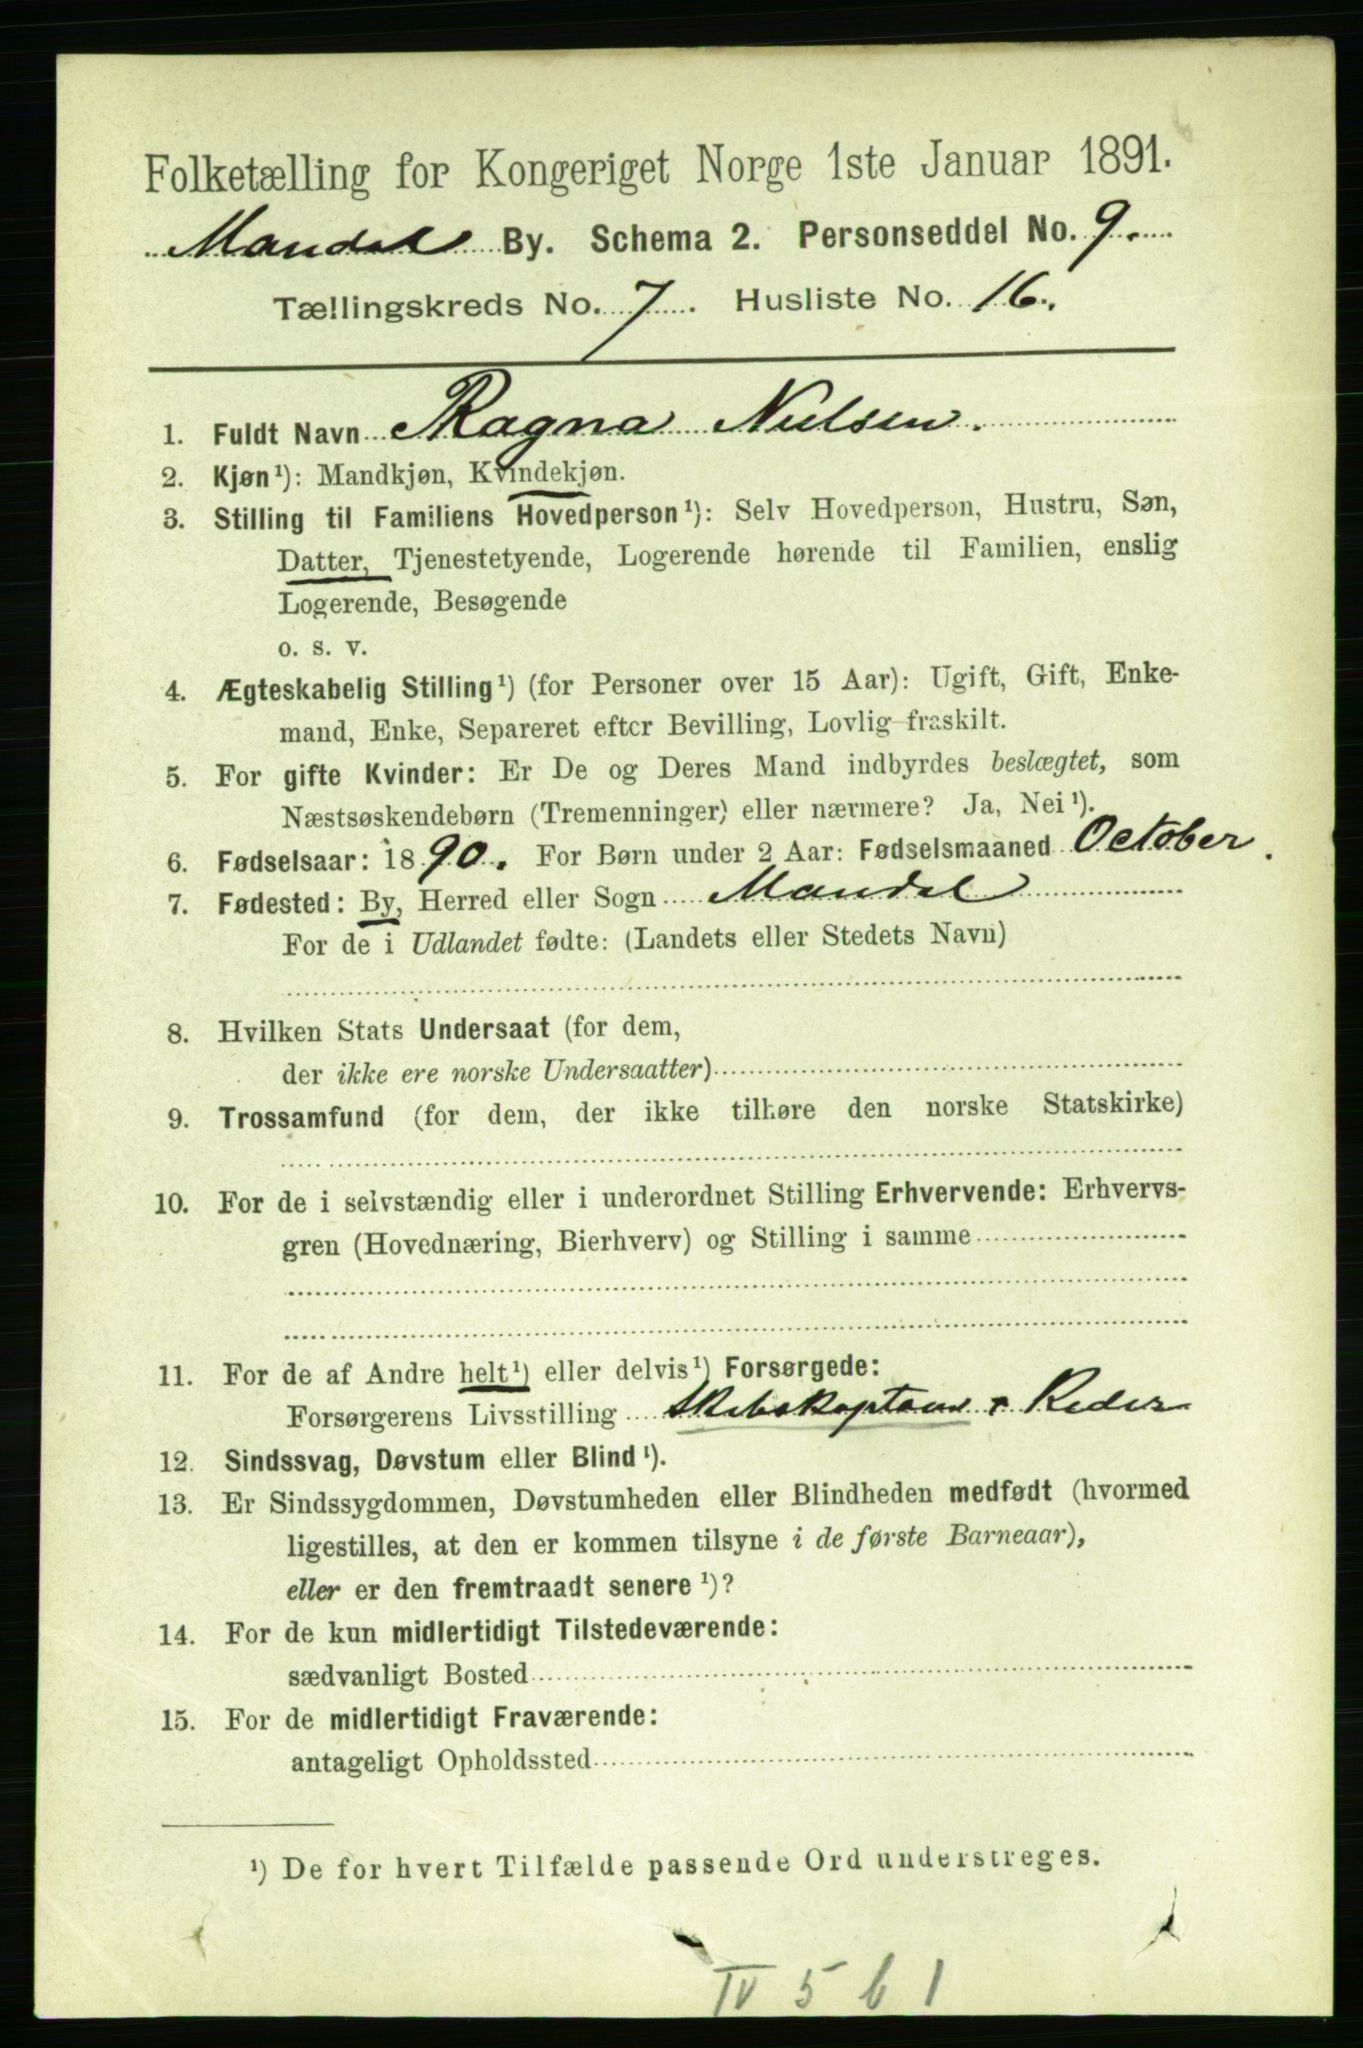 Folketælling for Kongeriget Norge 1ste Januar 1891.
Mandal By. Schema 2. Personseddel No. 9.
Tællingskreds No. 7. Husliste No. 16.
1. Fuldt Navn Ragna Nielsen.
2. Kjøn¹): Mandkjøn, Kvindekjøn.
3. Stilling til Familiens Hovedperson¹): Selv Hovedperson, Hustru, Søn,
Datter, Tjenestetyende, Logerende hørende til Familien, enslig
Logerende, Besøgende
o. s. v.
4. Ægteskabelig Stilling¹) (for Personer over 15 Aar): Ugift, Gift, Enke-
mand, Enke, Separeret efter Bevilling, Lovlig fraskilt.
5. For gifte Kvinder: Er De og Deres Mand indbyrdes beslægtet, som
Næstsøskendebørn (Tremenninger) eller nærmere? Ja, Nei¹).
6. Fødselsaar: 1890. For Børn under 2 Aar: Fødselsmaaned October.
7. Fødested: By, Herred eller Sogn Mandal
For de i Udlandet fødte: (Landets eller Stedets Navn)
8. Hvilken Stats Undersaat (for dem,
der ikke ere norske Undersaatter)
9. Trossamfund (for dem, der ikke tilhøre den norske Statskirke)
10. For de i selvstændig eller i underordnet Stilling Erhvervende: Erhvervs-
gren (Hovednæring, Bierhverv) og Stilling i samme
11. For de af Andre helt¹) eller delvis¹) Forsørgede:
Forsørgerens Livsstilling Skibskaptein & Reder
12. Sindssvag, Døvstum eller Blind¹).
13. Er Sindssygdommen, Døvstumheden eller Blindheden medfødt (hvormed
ligestilles, at den er kommen tilsyne i de første Barneaar),
eller er den fremtraadt senere¹)?
14. For de kun midlertidigt Tilstedeværende:
sædvanligt Bosted
15. For de midlertidigt Fraværende:
antageligt Opholdssted
¹) De for hvert Tilfælde passende Ord understreges.
IV 561